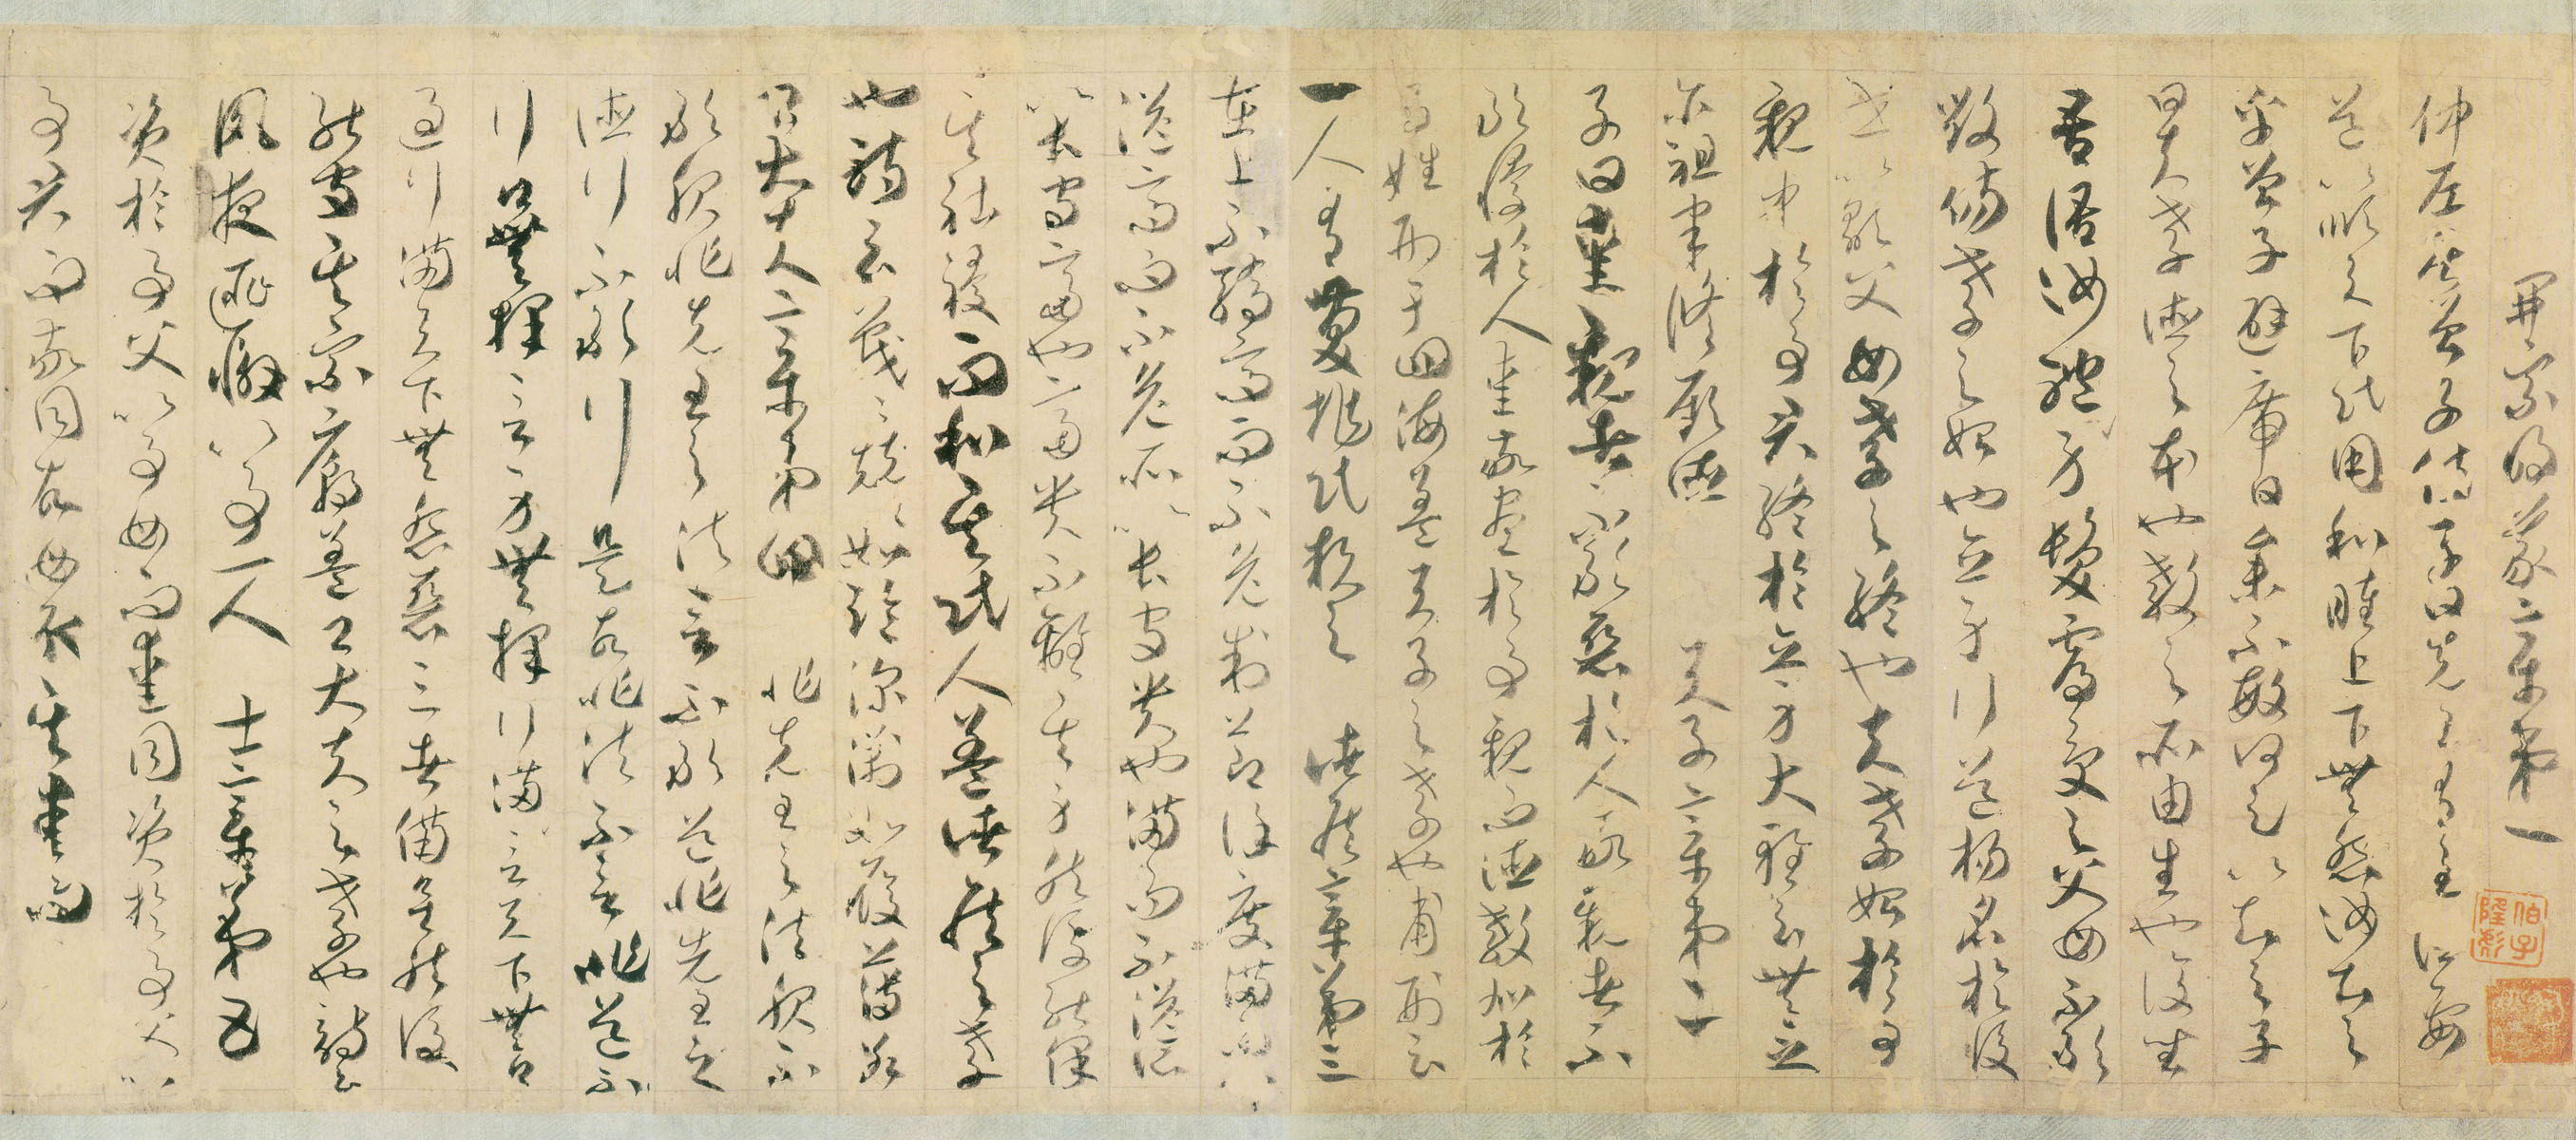 開宗明義章第一
仲尼居曾子侍子曰先王有至德要
道以順天下民用和睦上下無怨汝知之
乎曾子避席曰參不敏何足以知之子
曰夫孝德之本也教之所由生也復坐
吾語汝體身髮膚受之父母不敢
毀傷孝之始也立身行道揚名於後
世以顯父母孝之終也夫孝始於事
親中於事君終於立身大雅云無念
爾祖聿脩厥德 天子章第二
子曰愛親者不敢惡於人敬親者不
敢慢於人愛敬盡於事親而德教加於
百姓刑于四海蓋天子之孝也甫刑云
一人有慶兆民賴之 諸侯章第三
在上不驕高而不危制節謹度滿而不
溢高而不危所以長守貴也滿而不溢所
以長守富也富貴不離其身然後能保
其社稷而和其民人蓋諸侯之孝
也詩云戰〻兢〻如臨深淵如履薄冰
卿大夫章第四 非先王之法服不
敢服非先王之法言不敢道非先王之
德行不敢行是故非法不言非道不
行口無擇言身無擇行言滿天下無口
過行滿天下無怨惡三者備矣然後
能守其宗廟蓋卿大夫之孝也詩云
夙夜匪懈以事一人 士章第五
資於事父以事母而愛同資於事父以
事君而敬同故母取其愛而
伯子隆彰